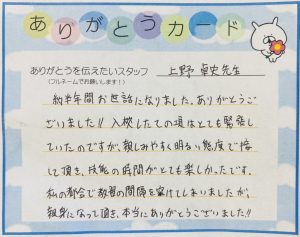 ありがとうカード
ありがとうを伝えたいスタッフ 上野 卓史先生
(フルネームでお願いします!)
約半年間お世話になりました。ありがとうご
ざいました!! 入校したての頃はとても緊張し
ていたのですが、親しみやすく明るい態度で接
して頂き、技能の時間がとても楽しかったです。
私の都合で教習の間隔を空けてしまいましたが、
親身になって頂き、本当にありがとうございました!!